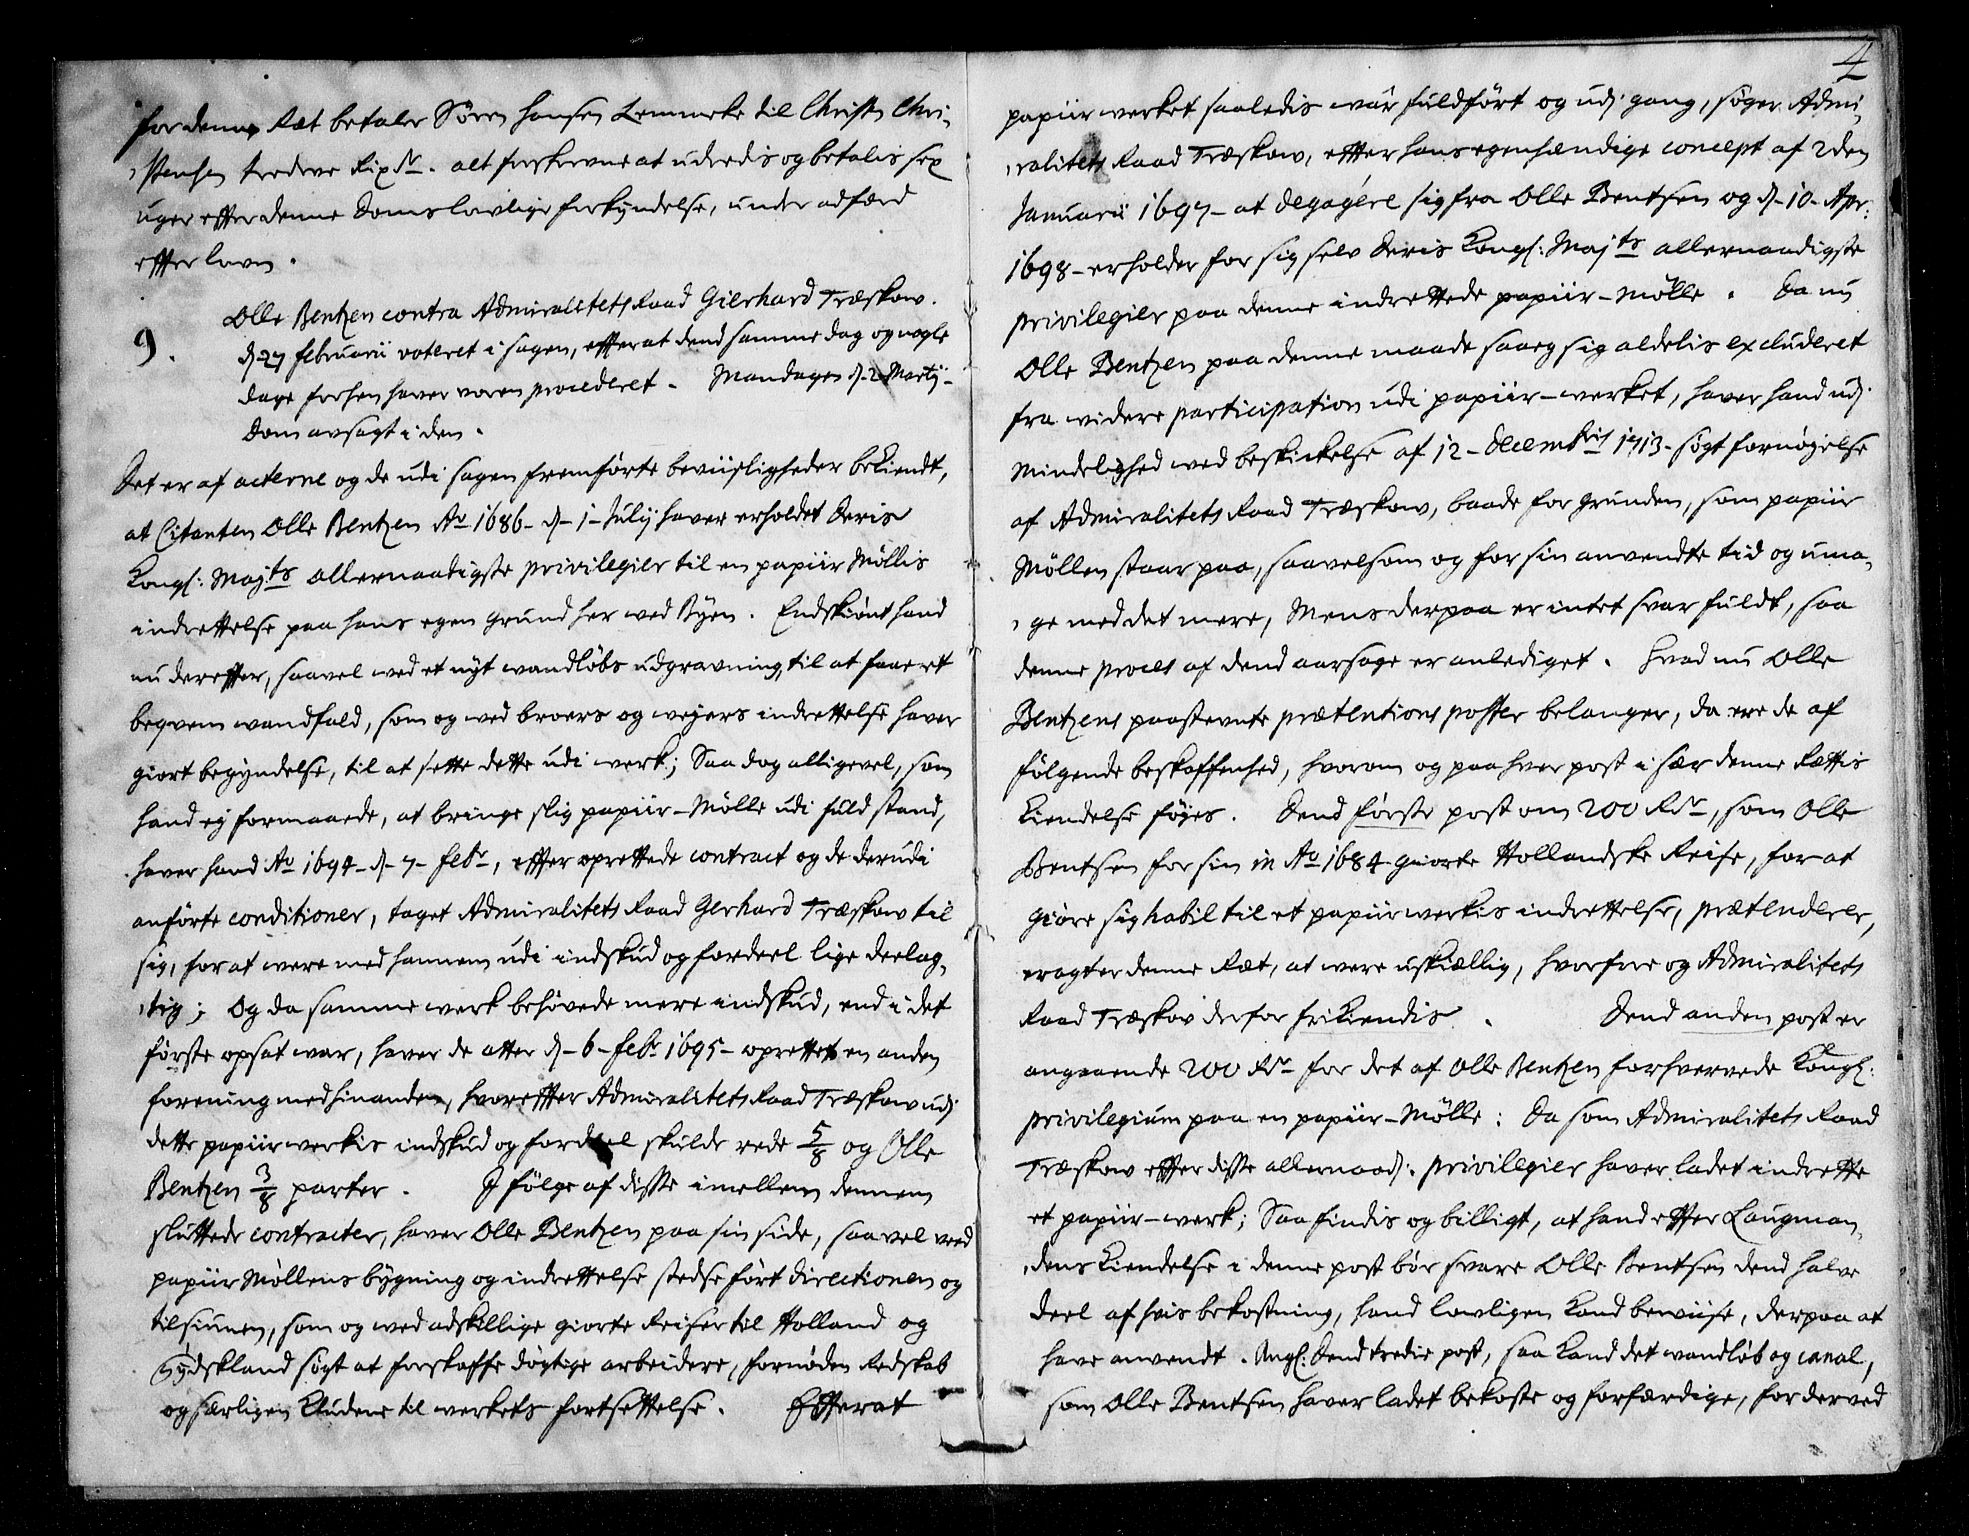 for denne Ræt betaler Sören Hansen Lemmeke til Christen Chri-
stensen tredeve Rixdr. alt forskrevne at udredis og betalis sex
uger effter denne Doms lovlige forkyndelse, under adfærd
effter loven.
9. Olle Bentzen contra Admiralitets Raad Gierhard Træskow.
d. 27 februarii voteret i sagen, effterat dend samme dag og nogle
dage forhen haver voren procederet. Mandagen d. 2 Martij
Dom avsagt i den.
Det er af acterne og de udi sagen fremförte beviisligheder bekiendt,
at Citanten Olle Bentzen Ao 1686 d. 1 Julij haver erholdet Deris
Kongl: Majts allernaadigste privilegier til en papiir Möllis
indrettelse paa hans egen grund her ved Byen. Endskiönt hand
nu dereffter, saavel ved et nyt wandløbs udgravning, til at faae et
beqvem wandfald, som og ved broers og wejers indrettelse haver
giort begyndelse, til at sette dette udi werk; Saa dog alligevel, som
hand ej formaaede, at bringe slig papiir-Mölle udi fuld stand,
haver hand Ao 1694 d. 7 febr, effter oprettede contract og de derudi
anförte conditioner, taget Admiralitets Raad Gerhard Træskow til
sig, for at were med hannem udi indskud og fordeel lige deelag-
tig; Og da samme werk behövede mere indskud, end i det
förste opsat war, haver de atter d. 6 febr 1695 oprettet en anden
forening med hinanden, hvoreffter Admiralitets Raad Træskow udj
dette papiirwerkis indskud og fordeel skulde rede 5/8 og Olle
Bentzen 3/8 parter. I fölge af disse imellem dennem
sluttede contracter, haver Olle Bentzen paa sin side, saavel ved
papiir Möllens bygning og indrettelse stedse fört directionen og
tilsiunen, som og ved adskillige giorte Reiser til Holland og
Tydskland sögt at forskaffe dögtige arbeidere, fornöden Redskab
og særligen Kludene til werkets fortsettelse. Efferat
4
papiirwerket saaledis war fuldfört og udj gang, söger Admi-
ralitets Raad Træskow, effter hans egenhændige concept af 2den
Januarii 1697 at degagere sig fra Olle Bentsen og d. 10 Apr:
1698 erholder for sig selv Deris Kongl: Majts allernaadigste
privilegier paa denne indrettede papiir-Mölle. Da nu
Olle Bentzen paa denne maade saaeg sig aldelis excluderet
fra widere participation udi papiir-werket, haver hand udj
Mindelighed ved beskickelse af 12 Decembris 1713 sögt fornøgelse
af Admiralitets Raad Træskow, baade for grunden, som papiir
Möllen staar paa, saavelsom og for sin anvendte tid og uma-
ge med det mere, Mens derpaa er intet svar fuldt, saa
denne proces af dend aarsage er anlediget. Hvad nu Olle
Bentzens paastevnte prætentions poster belanger, da ere de af
fölgende beskaffenhed, hvorom og paa hver post i sær denne Rettis
Kiendelse föyes. Dend förste post om 200 Rdr, som Olle
Bentsen for sin in Ao 1684 giorte Hollandske Reise, for at
giöre sig habil til et papiirwerkis indrettelse, prætenderer,
eragter denne Ræt, at were uskiællig, hvorfore og Admiralitets
Raad Træskov derfor frikiendis. Dend anden post er
angaaende 200 Rdr for det af Olle Bentzen forhvervede Kongl:
privilegium paa en papiir-Mölle: Da som Admiralitets Raad
Træskow effter disse allernaad: privilegier haver ladet indrette
et papiir-werk; Saa findis og billigt, at hand effter Laugman-
dens Kiendelse i denne post bör svare Olle Bentsen dend halve
deel af hvis bekostning, hand lovligen kand beviise, derpaa at
have anvendt. Angl: Dend tredie post, saa kand det wandløb og canal,
som Olle Bentsen haver ladet bekoste og forfærdige, for derved